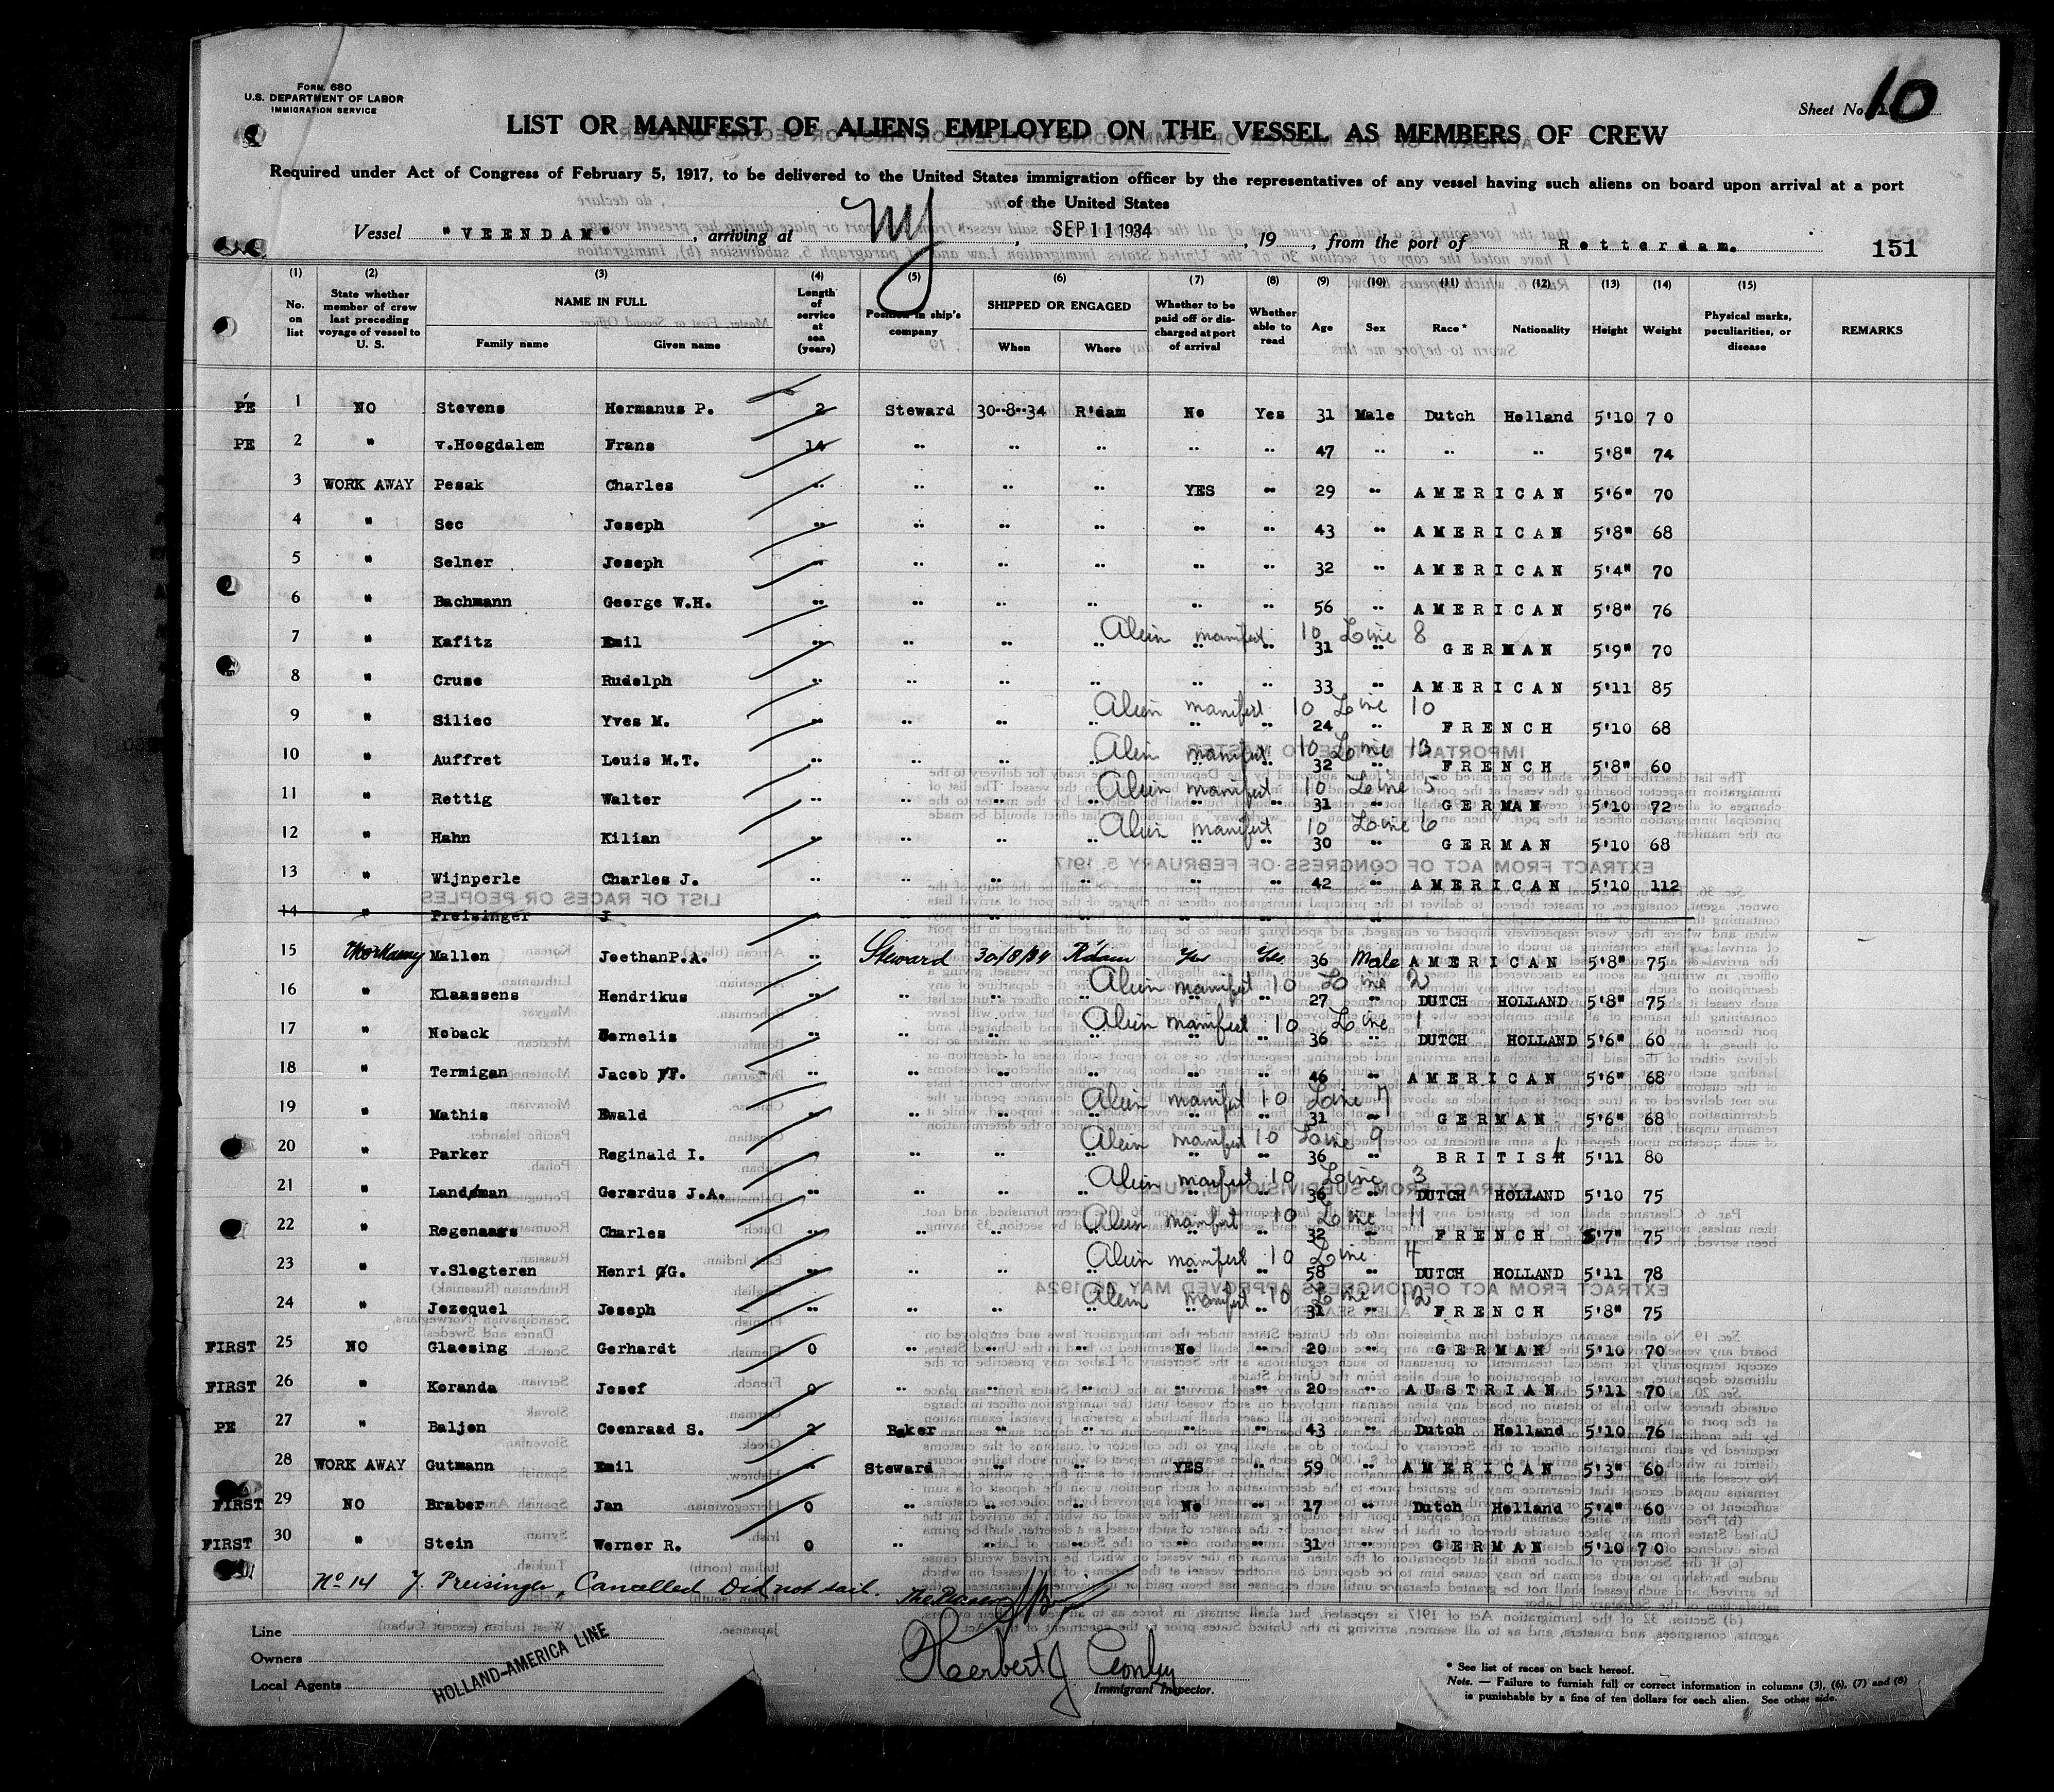 FORM 680
U.S. DEPARTMENT OF LABOR
IMMIGRATION SERVICE
Sheet No. 10
LIST OR MANIFEST OF ALIENS EMPLOYED ON THE VESSEL AS MEMBERS OF CREW
Required under Act of Congress of February 5, 1917, to be delivered to the United States immigration officer by the representatives of any vessel having such aliens on board upon arrival at a port
of the United States
Vessel "VEENDAM", arriving at NY, SEP 11 1934, 19, from the port of Rotterdam. 151
(1) (2) (3) (4) (5) (6) (7) (8) (9) (10) (11) (12) (13) (14) (15)
No. on list State whether member of crew last preceding voyage of vessel to U. S. NAME IN FULL Family name Given name Length of service at sea (years) Position in ship's company SHIPPED OR ENGAGED When Where Whether to be paid off or discharged at port of arrival Whether able to read Age Sex Race* Nationality Height Weight Physical marks, peculiarities, or disease REMARKS
PE 1 NO Stevens Hermanus P. 2 Steward 30-8-34 R'dam No Yes 31 Male Dutch Holland 5'10 70
PE 2 " v.Hoogdalem Frans 14 " " " " " 47 " " " 5'8" 74
3 WORK AWAY Pesak Charles " " " " YES " 29 " AMERICAN 5'6" 70
4 " Sec Joseph " " " " " " 43 " AMERICAN 5'8" 68
5 " Selner Joseph " " " " " " 32 " AMERICAN 5'4" 70
6 " Bachmann George W.H. " " " " " " 56 " AMERICAN 5'8" 76
Alein manifest 10 Line 8
7 " Kafitz Emil " " " " " " 31 " GERMAN 5'9" 70
8 " Cruse Rudolph " " " " " " 33 " AMERICAN 5'11 85
Alein manifest 10 Line 10
9 " Siliec Yves M. " " " " " " 24 " FRENCH 5'10 68
Alein manifest 10 Line 13
10 " Auffret Louis M.T. " " " " " " 32 " FRENCH 5'8" 60
Alein manifest 10 Line 5
11 " Rettig Walter " " " " " " 31 " GERMAN 5'10 72
Alein manifest 10 Line 6
12 " Hahn Kilian " " " " " " 30 " GERMAN 5'10 68
13 " Wijnperle Charles J. " " " " " " 42 " AMERICAN 5'10 112
14 " Preisinger J " " " " " " " "
15 Workaway Mallon JeethanP.A. " Steward 30/8/34 R'dam Yes Yes 36 Male AMERICAN 5'8" 75
Alein manifest 10 Line 2
16 " Klaassens Hendrikus " " " " " " 27 " DUTCH HOLLAND 5'8" 75
Alein manifest 10 Line 1
17 " Noback Cornelis " " " " " " 36 " DUTCH HOLLAND 5'6" 60
18 " Termigan Jacob F. " " " " " " 46 " AMERICAN 5'6" 68
Alein manifest 10 Line 7
19 " Mathis Ewald " " " " " " 31 " GERMAN 5'6" 68
Alein manifest 10 Line 9
20 " Parker Reginald I. " " " " " " 36 " BRITISH 5'11 80
Alein manifest 10 Line 3
21 " Landman Gerardus J.A. " " " " " " 36 " DUTCH HOLLAND 5'10 75
Alein manifest 10 Line 11
22 " Regenaars Charles " " " " " " 32 " FRENCH 5'7" 75
Alein manifest 10 Line 4
23 " v.Slogteren Henri G. " " " " " " 58 " DUTCH HOLLAND 5'11 78
Alein manifest 10 Line 12
24 " Jezequel Joseph " " " " " " 31 " FRENCH 5'8" 75
FIRST 25 NO Glaesing Gerhardt 0 " " " No " 20 " GERMAN 5'10 70
FIRST 26 " Koranda Josef 0 " " " " " 20 " AUSTRIAN 5'11 70
PE 27 " Baljon Coenraad S. 2 Baker " " " " 43 " Dutch Holland 5'10 76
28 WORK AWAY Gutmann Emil " Steward " " YES " 59 " AMERICAN 5'3" 60
FIRST 29 NO Braber Jan 0 " " " No " 17 " Dutch Holland 5'4" 60
FIRST 30 " Stein Werner R. 0 " " " " " 31 " GERMAN 5'10 70
No 14 J. Preisinger, Cancelled Did not sail.
Line
Owners
Local Agents
HOLLAND-AMERICA LINE
Herbert J Conley
Immigrant Inspector.
* See list of races on back hereof.
Note. — Failure to furnish full or correct information in columns (3), (6), (7) and (8)
is punishable by a fine of ten dollars for each alien. See other side.